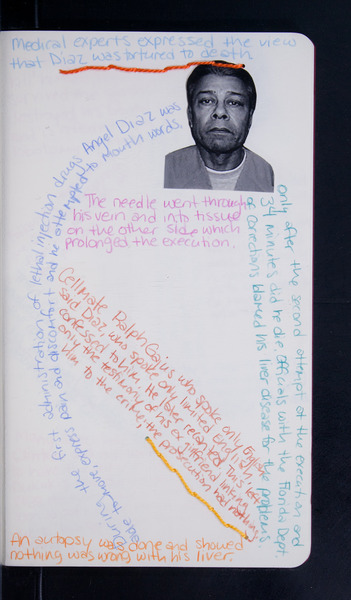 Medical experts expressed the view
that Diaz was tortured to death
during the first administration of lethal injection drugs Angel Diaz was
able to move express pain and discomfort and he attempted to mouth words.
The needle went through
his vein and into tissue
on the other side which
prolonged the execution.
only after the second attempt of the execution and
34 minutes did he die Officials with the Florida Dept.
of Corrections blamed his liver disease for the problems.
Cellmate Ralph Gajus who spoke only English
said Diaz, who spoke only limited English,
confessed to him. He later recanted. This left
only the testimony of his ex girlfriend linking
him to the crime, the prosecution had nothing
An autopsy was done and showed
nothing was wrong with his liver.